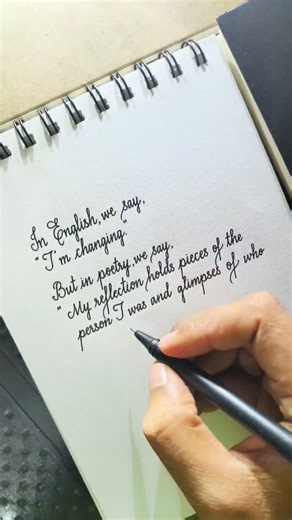 In English, we say,
"I'm changing."
But in poetry, we say,
"My reflection holds pieces of the
person I was and glimpses of who